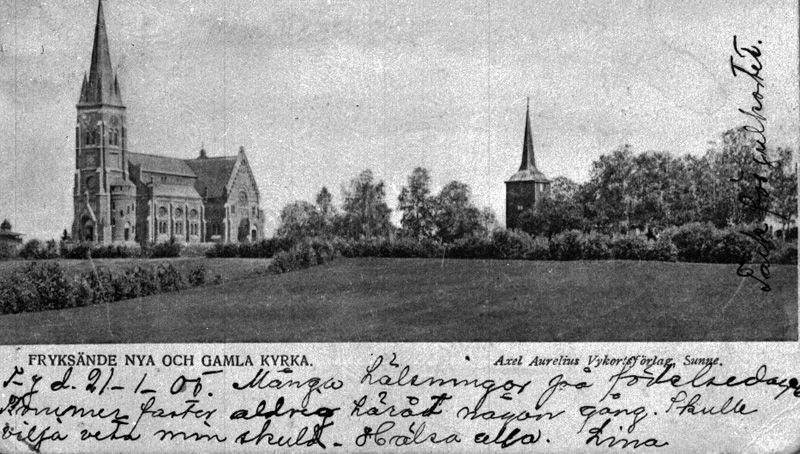 FRYKSÄNDE NYA OCH GAMLA KYRKA.
Axel Aurelius Vykortsförlag, Sunne.
F-g d. 21-1-05. Många hälsningar på födelsedagen
Kommer faster aldrig häråt någon gång. Skulle
vilja veta min skuld. Hälsa alla. Lina
Tack för julkortet.